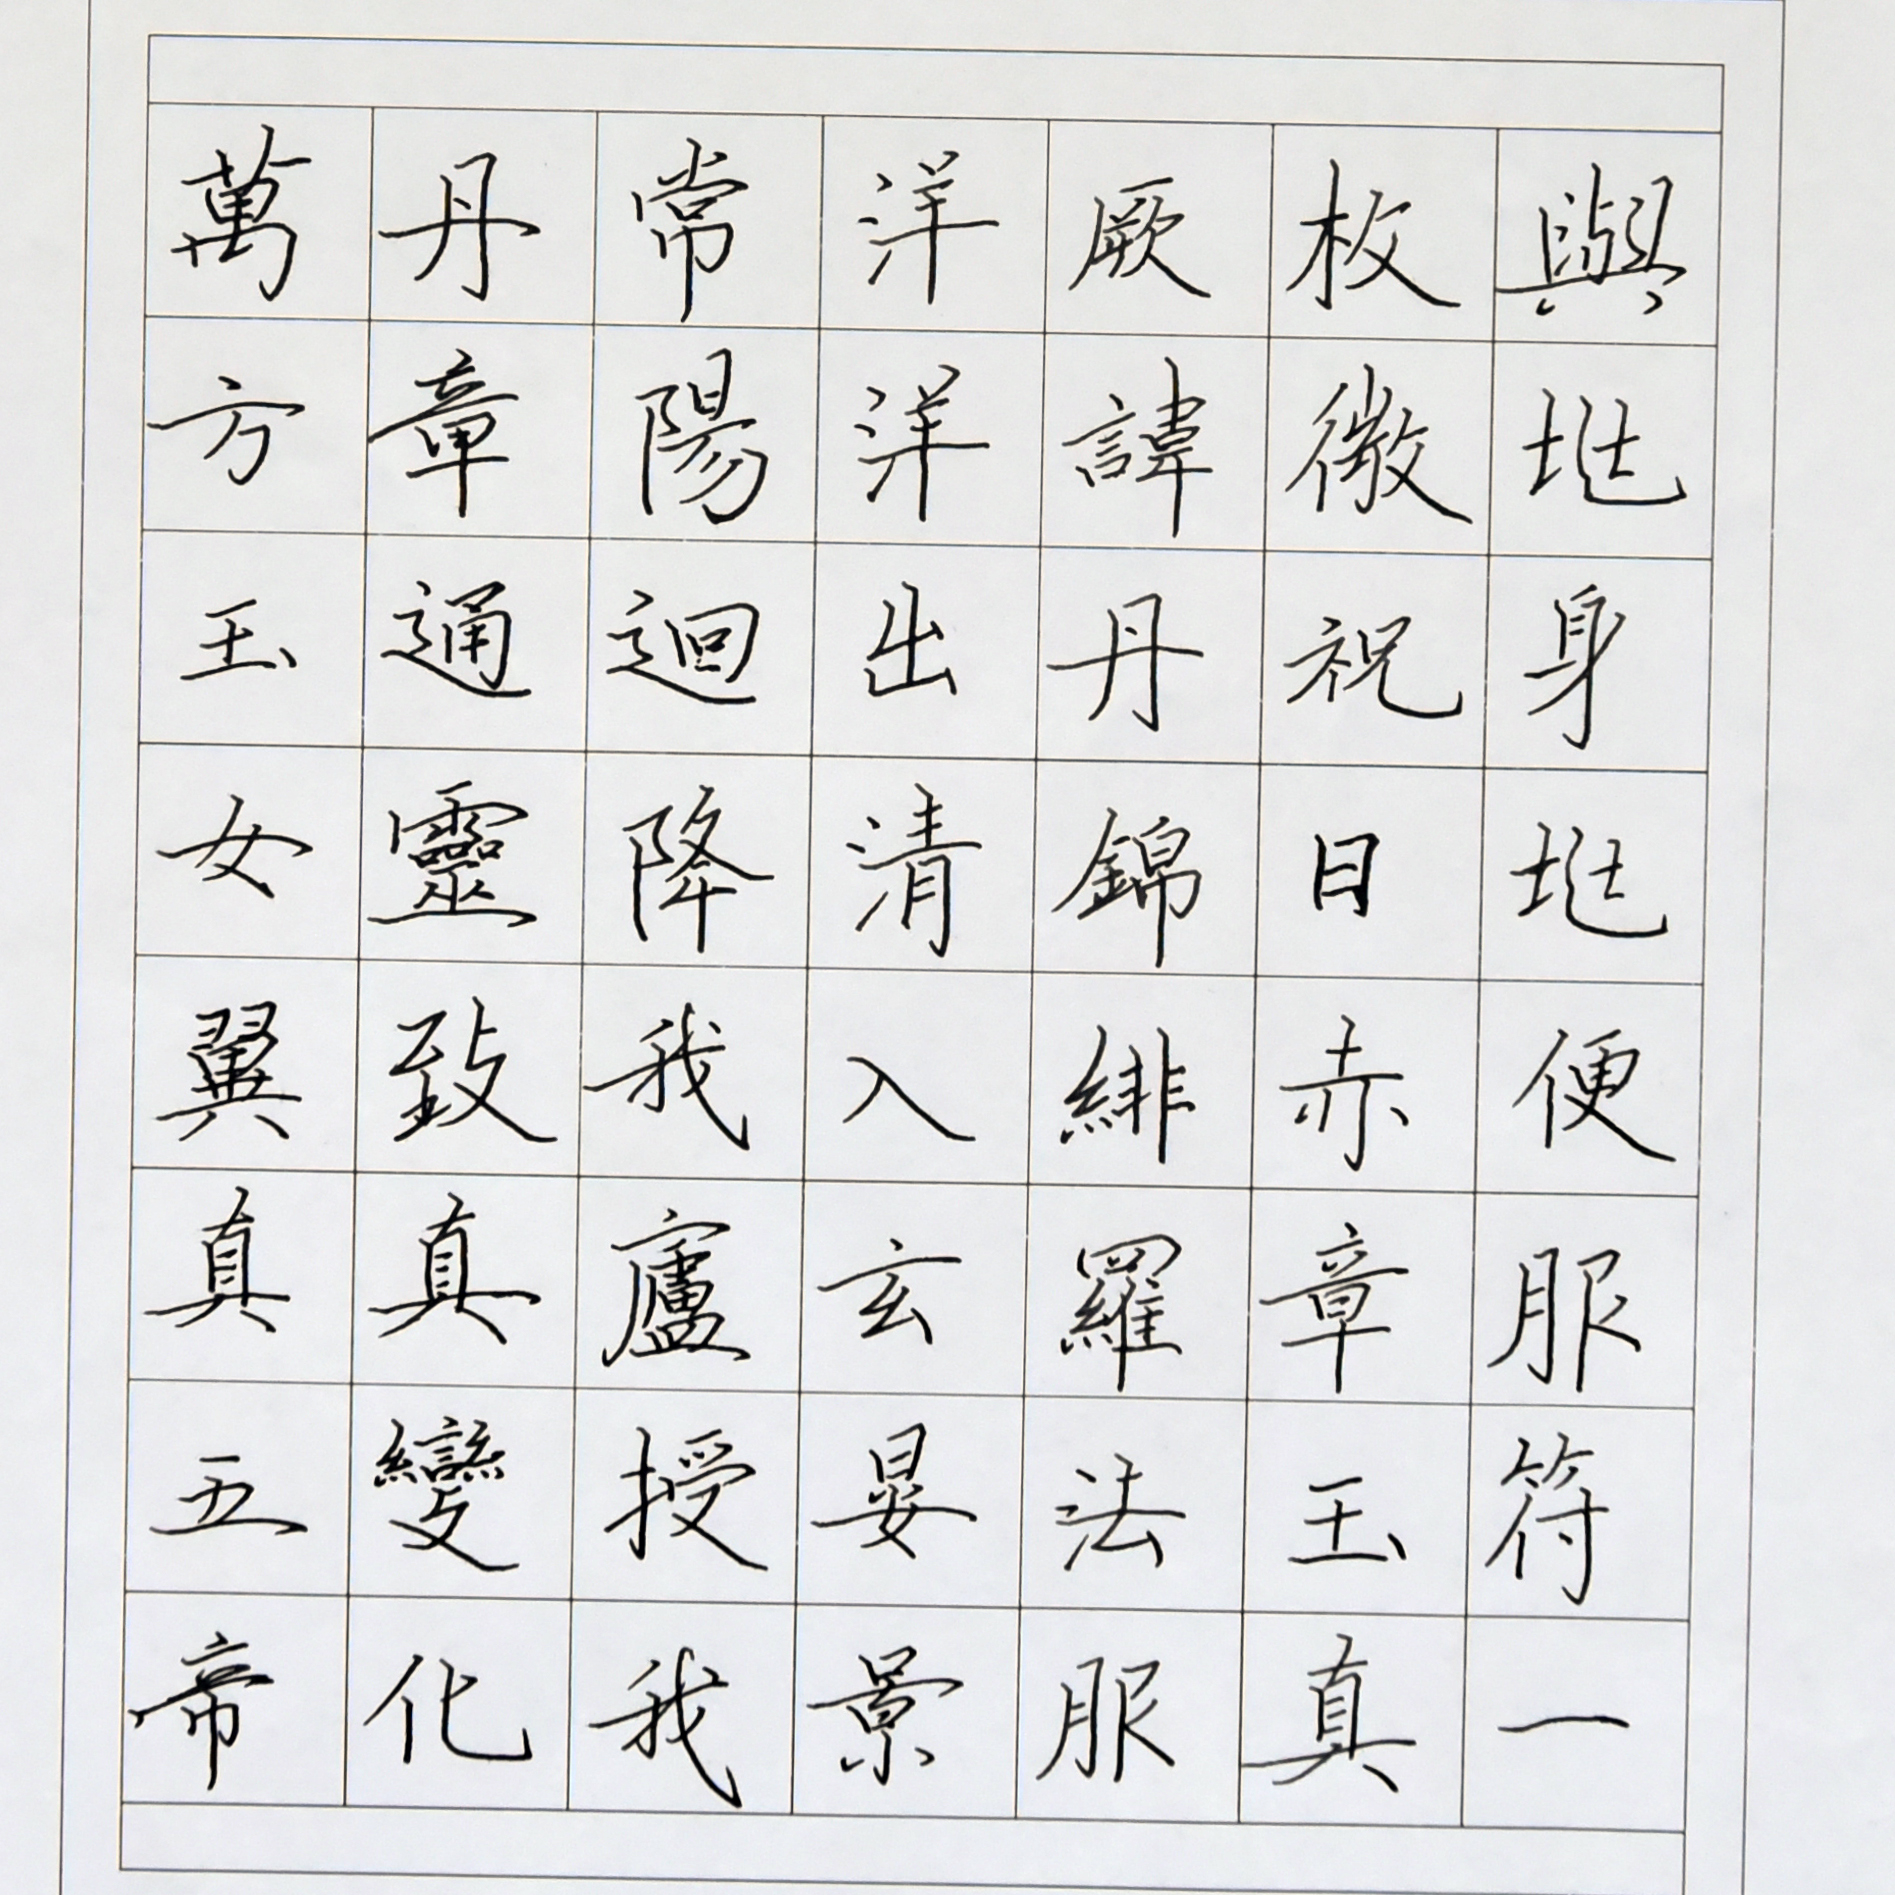 與地身地便服符一
枚微祝日赤章玉真
厥諱丹錦緋羅法服
洋洋出清入玄晏景
常陽迴降我廬授我
丹章通靈致真變化
萬方玉女翼真五帝